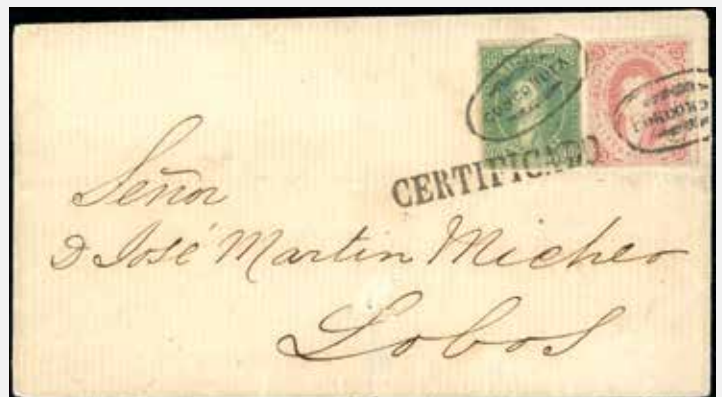 CONCORDIA
CERTIFICADO
Señor
D José Martin Micheo
Lobos